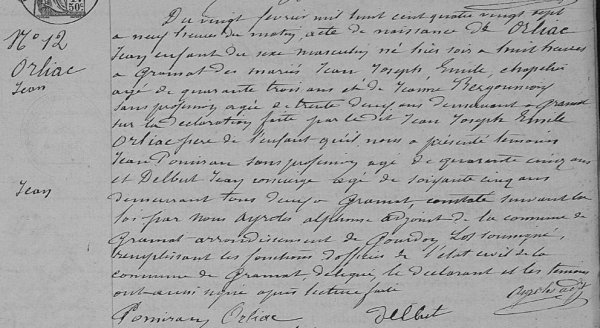 50c
N° 12
Orliac
Jean
Jean
Du vingt février mil huit cent quatre vingt sept
a neuf heures du matin, acte de naissance de Orliac
Jean enfant du sexe masculin né hier soir a huit heures
a Gramat des mariés Jean Joseph Emile, chapelier
agé de quarante trois ans et de Jeanne Bergounioux
sans profession agée de trente deux ans demeurant a Gramat
sur la déclaration faite par le dit Jean Joseph Emile
Orliac pere de l'enfant qu'il nous a présenté temoins
Jean Pomiran sans profession agé de quarante cinq ans
et Delbut Jean concierge agé de soixante cinq ans
demeurant tous deux a Gramat, constaté suivant la
loi par nous Ayroles alphonse adjoint de la commune de
Gramat arrondissement de Gourdon Lot soussigné,
remplissant les fonctions d'officier de l'état civil de la
commune de Gramat, délégué, le declarant et les temoins
ont aussi signé après lecture faite
Pomiran Orliac Delbut